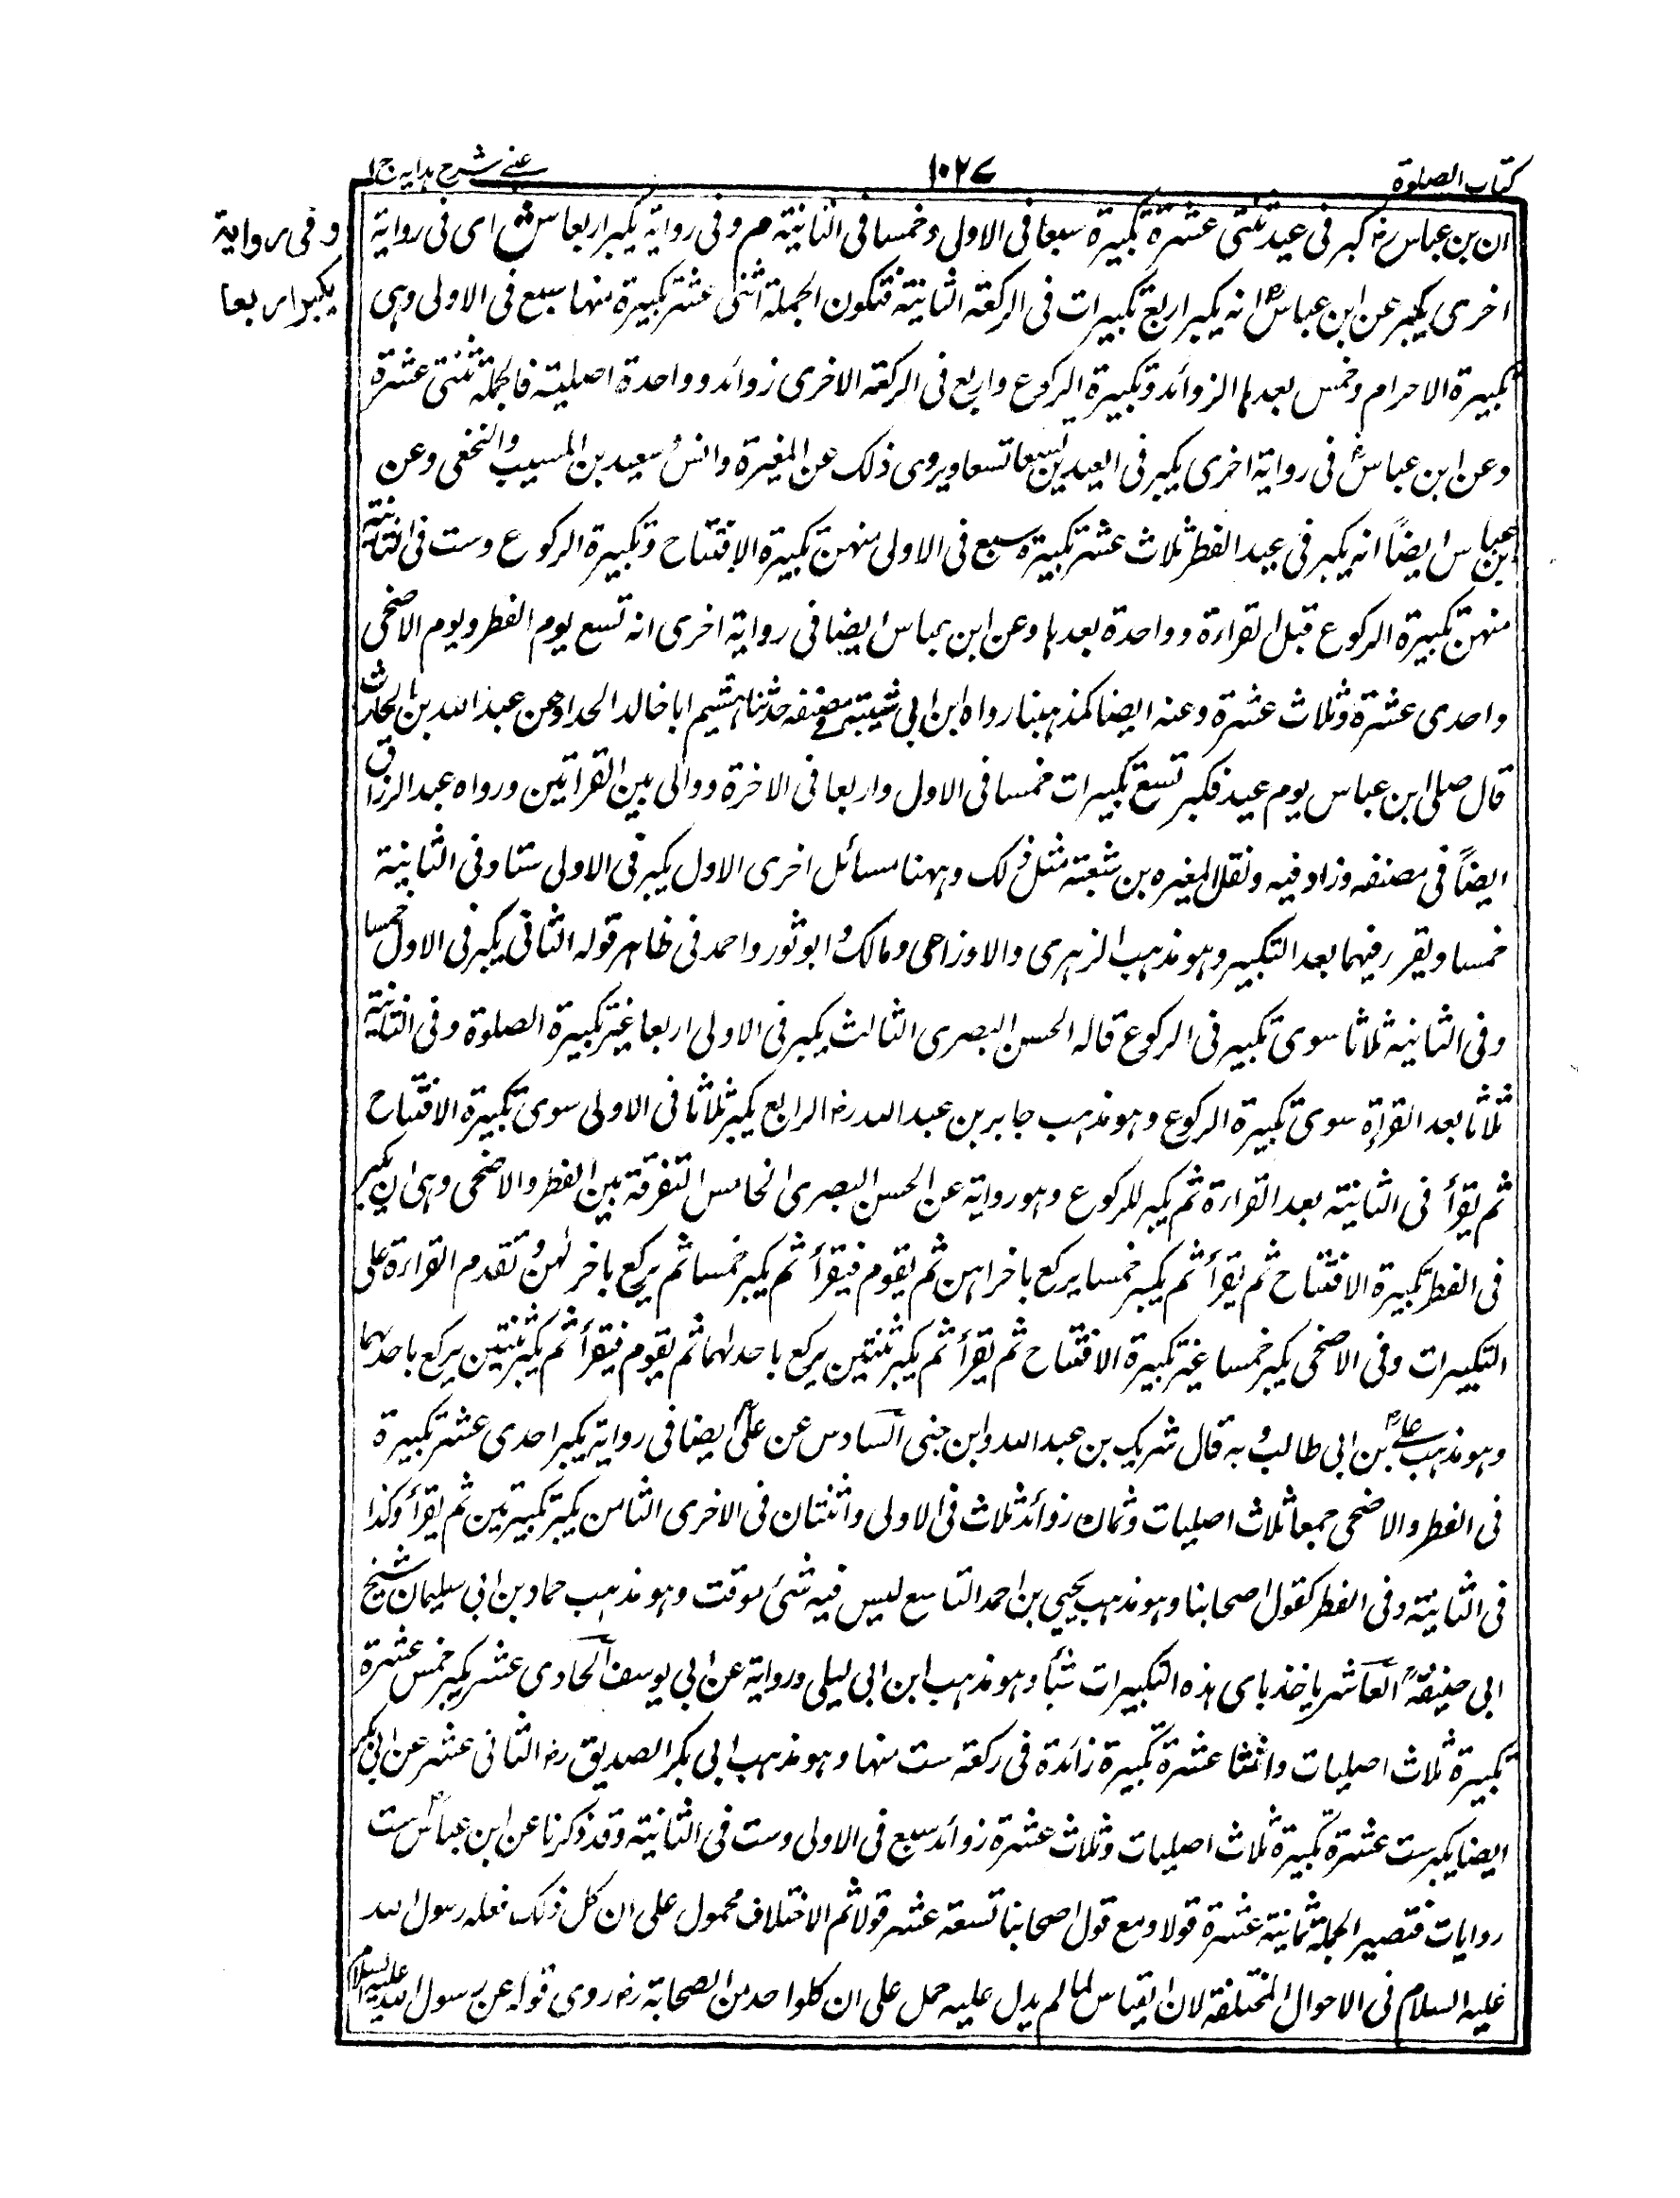 كتاب الصلوة
١٠٢٧
عينے شرح هدايه ج١
ان بن عباس رضه كبر فى عيد ثنتى عشرة تكبيرة سبعا فى الاولى وخمسا فى الثانية م وفى رواية يكبر اربعا ش اى فى رواية
وفى رواية
يكبر اربعا
اخرى يكبر عن ابن عباس رضه انه يكبر اربع تكبيرات فى الركعة الثانية فتكون الجملة اثنى عشر تكبيرة منها سبع فى الاولى وهى
تكبيرة الاحرام وخمس بعدها الزوائد وتكبيرة الركوع واربع فى الركعة الاخرى زوائد وواحدة اصلية فالجملة ثنتى عشرة
وعن ابن عباس رضه فى رواية اخرى يكبر فى العيدين تسعا تسعا ويروى ذلك عن المغيرة وانس و سعيد بن المسيب والنخعى وعن
ابن عباس ايضاً انه يكبر فى عيد الفطر ثلاث عشر تكبيرة سبع فى الاولى منهن تكبيرة الافتتاح وتكبيرة الركوع وست فى الثانية
منهن تكبيرة الركوع قبل القراءة وواحدة بعدها وعن ابن عباس ايضا فى رواية اخرى انه تسع يوم الفطر ويوم الاضحى
واحدى عشرة وثلاث عشرة وعنه ايضا كمذهبنا رواه ابن ابى شيبة فى مصنفه حدثنا هشيم ابا خالد الحذاء عن عبد الله بن الحارث
قال صلى ابن عباس يوم عيد فكبر تسع تكبيرات خمسا فى الاول واربعا فى الاخرة ووالى بين القراتين ورواه عبد الرزاق
ايضاً فى مصنفه وزاد فيه ونقل المغيره بن شعبة مثل ذلك وههنا مسائل اخرى الاول يكبر فى الاولى ستا وفى الثانية
خمسا ويقرر فيهما بعد التكبير وهو مذهب الزهرى والاوزاعى ومالك و ابو ثور واحمد فى ظاهر قوله الثانى يكبر فى الاول خمسا
وفى الثانية ثلاثا سوى تكبير فى الركوع قاله الحسن البصرى الثالث يكبر فى الاولى اربعا غير تكبيرة الصلوة وفى الثانية
ثلاثا بعد القراة سوى تكبيرة الركوع وهو مذهب جابر بن عبد الله رضه الرابع يكبر ثلاثا فى الاولى سوى تكبيرة الافتتاح
ثم يقرأ فى الثانية بعد القراءة ثم يكبر للركوع وهو رواية عن الحسن البصرى الخامس التفرقة بين الفطر والاضحى وهى ان يكبر
فى الفطر تكبيرة الافتتاح ثم يقرأ ثم يكبر خمسا يركع باخراهن ثم يقوم فيقرأ ثم يكبر خمسا ثم يركع باخرلهن و تقدم القراءة على
التكبيرات وفى الاضحى يكبر خمسا غير تكبيرة الافتتاح ثم يقرأ ثم يكبر ثنتين يركع باحدلهما ثم يقوم فيقرأ ثم يكبر ثنتين يركع باحدهما
وهو مذهب على رضه بن ابى طالب و به قال شريك بن عبد الله وابن جنى السادس عن على رضه ايضا فى رواية يكبر احدى عشر تكبيرة
فى الفطر والاضحى جمعا ثلاث اصليات وثمان زوائد ثلاث فى الاولى واثنتان فى الاخرى الثامن يكبر تكبيرتين ثم يقرأ وكذا
فى الثانية وفى الفطر كقول اصحابنا وهو مذهب يحيى بن احمد التاسع ليس فيه شئ موقت وهو مذهب حماد بن ابى سليمان شيخ
ابى حنيفة رح العاشر ياخذ باى هذه التكبيرات شأ وهو مذهب ابن ابى ليلى ورواية عن ابى يوسف الحادى عشر يكبر خمس عشرة
تكبيرة ثلاث اصليات واثنتا عشرة تكبيرة زائدة فى ركعة ست منها وهو مذهب ابى بكر الصديق رضه الثانى عشر عن ابى بكر
ايضا يكبر ست عشرة تكبيرة ثلاث اصليات وثلاث عشرة زوائد سبع فى الاولى وست فى الثانية وقد ذكرنا عن ابن عباس رضه ست
روايات فتصير الجملة ثمانية عشرة قولا ومع قول اصحابنا تسعة عشر قولا ثم الاختلاف محمول على ان كل ذلك فعله رسول الله
عليه السلام فى الاحوال المختلفة لان القياس لما لم يدل عليه حمل على ان كلواحد من الصحابة رضه روى قوله عن رسول الله عليه السلام